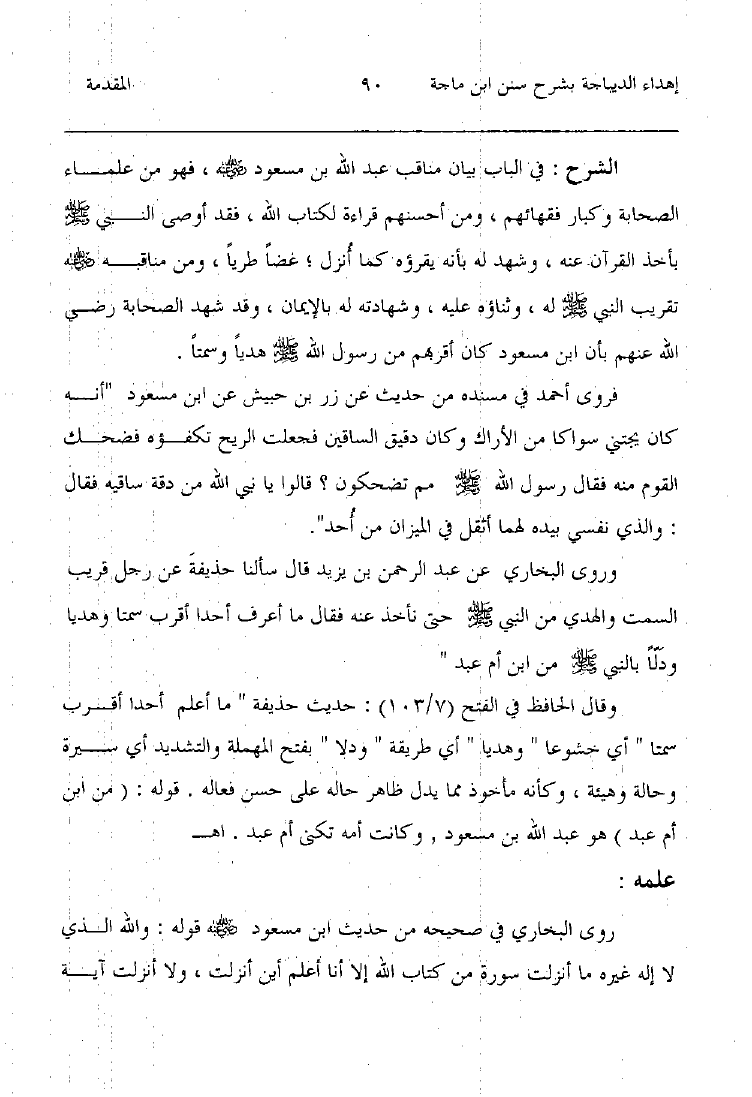 إهداء الديباجة بشرح سنن ابن ماجة ٩٠ المقدمة
الشرح : في الباب بيان مناقب عبد الله بن مسعود ﵁ ، فهو من علمـــاء
الصحابة وكبار فقهائهم ، ومن أحسنهم قراءة لكتاب الله ، فقد أوصى النـــبي ﷺ
بأخذ القرآن عنه ، وشهد له بأنه يقرؤه كما أُنزل ؛ غضاً طرياً ، ومن مناقبـــه ﵁
تقريب النبي ﷺ له ، وثناؤه عليه ، وشهادته له بالإيمان ، وقد شهد الصحابة رضـي
الله عنهم بأن ابن مسعود كان أقربهم من رسول الله ﷺ هدياً وسمتاً .
فروى أحمد في مسنده من حديث عن زر بن حبيش عن ابن مسعود "أنـــه
كان يجتني سواكا من الأراك وكان دقيق الساقين فجعلت الريح تكفـــؤه فضحـــك
القوم منه فقال رسول الله ﷺ مم تضحكون ؟ قالوا يا نبي الله من دقة ساقيه فقال
: والذي نفسي بيده لهما أثقل في الميزان من أُحد".
وروى البخاري عن عبد الرحمن بن يزيد قال سألنا حذيفةَ عن رجل قريب
السمت والهدي من النبي ﷺ حتى نأخذ عنه فقال ما أعرف أحدا أقرب سمتا وهديا
ودَلّاً بالنبي ﷺ من ابن أم عبد "
وقال الحافظ في الفتح (١٠٣/٧) : حديث حذيفة " ما أعلم أحدا أقـــرب
سمتا " أي خشوعا " وهديا " أي طريقة " ودلا " بفتح المهملة والتشديد أي ســـيرة
وحالة وهيئة ، وكأنه مأخوذ مما يدل ظاهر حاله على حسن فعاله . قوله : ( من ابن
أم عبد ) هو عبد الله بن مسعود , وكانت أمه تكنى أم عبد . اهــ
علمه :
روى البخاري في صحيحه من حديث ابن مسعود ﵁ قوله : والله الــذي
لا إله غيره ما أنزلت سورة من كتاب الله إلا أنا أعلم أين أنزلت ، ولا أنزلت آيـــة